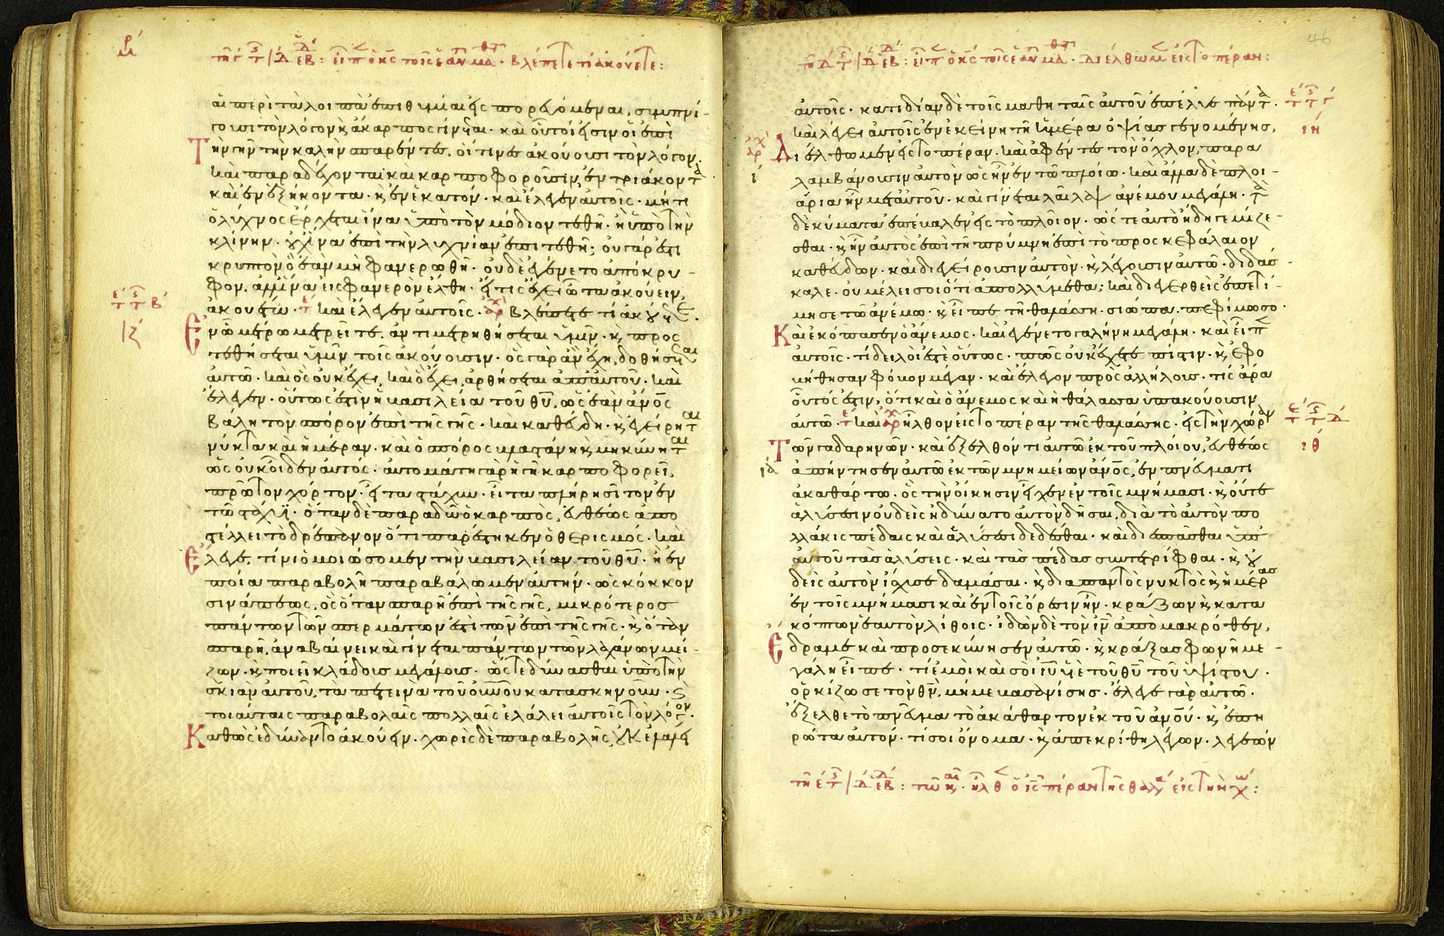 τῆ γ ϛ τ ιδ ἑβ: εἶπ ὁ κς τοῖς ἑαυτ μαθ. βλέπετε τί ἀκούετε:
αἱ περὶ τὰ λοιπὰ ἐπιθυμίαι εἰσπορευόμεναι, συμπνί-
γουσι τὸν λόγον κ ἄκαρπος γίνεται. καὶ οὗτοί εἰσιν οἱ ἐπὶ
Τὴν γῆν τὴν καλὴν σπαρέντες, οἵτινες ἀκούουσι τὸν λόγον,
καὶ παραδέχονται καὶ καρποφοροῦσιν, ἐν τριάκοντα
καὶ ἐν ἑξήκοντα. κ ἐν ἑκατόν. καὶ ἔλεγεν αὐτοῖς. μήτι
ὁ λύχνος ἔρχεται ἵνα ὑπὸ τὸν μόδιον τεθῆ. ἢ ὑπὸ τὴν
κλίνην. οὐχ ἵνα ἐπὶ τὴν λυχνίαν ἐπιτεθῆ; οὐ γάρ ἐστι
κρυπτὸν ὃ ἐὰν μὴ φανερωθῆ. οὐδὲ ἐγένετο ἀπόκρυ-
φον. ἀλλ' ἵνα εἰς φανερὸν ἔλθη. εἴ τις ἔχει ὦτα ἀκούειν
ἀκουέτω. τε καὶ ἔλεγεν αὐτοῖς. αρχ βλέπετε τί ἀκούετε.
Ἐν ᾧ μέτρω μετρεῖτε, ἀντιμετρηθήσεται ὑμῖν. κ προσ
τεθήσεται ὑμῖν τοῖς ἀκούουσιν. ὃς γὰρ ἂν ἔχη, δοθήσεται
αὐτῶ. καὶ ὃς οὐκ ἔχει, καὶ ὃ ἔχει, ἀρθήσεται ἀπ' αὐτοῦ. καὶ
ἔλεγεν. οὕτως ἐστὶν ἡ βασιλεία τοῦ θυ, ὡς ἐὰν ἄνος
βάλη τὸν σπόρον ἐπὶ τῆς γῆς. καὶ καθεύδη. κ ἐγείρηται
νύκτα καὶ ἡμέραν. καὶ ὁ σπόρος βλαστάνη κ μηκύνηται
ὡς οὐκ οἶδεν αὐτός. αὐτομάτη γὰρ ἡ γῆ καρποφορεῖ,
πρῶτον χόρτον. εἶτα στάχυν. εἶτα πλήρη σῖτον ἐν
τῶ στάχυϊ. ὅταν δὲ παραδῶ ὁ καρπὸς, εὐθέως ἀπο
στέλλει τὸ δρέπανον ὅτι παρέστηκεν ὁ θερισμός. καὶ
Ἔλεγε. τίνι ὁμοιώσομεν τὴν βασιλείαν τοῦ θυ. ἢ ἐν
ποία παραβολῆ παραβάλωμεν αὐτήν. ὡς κόκκον
σινάπεως, ὃς ὅταν σπαρῆ ἐπὶ τῆς γῆς, μικρότερος
πάντων τῶν σπερμάτων ἐστὶ τῶν ἐπὶ τῆς γῆς. κ ὅταν
σπαρῆ, ἀναβαίνει καὶ γίνεται πάντων τῶν λαχάνων μεί-
ζων. κ ποιεῖ κλάδους μεγάλους. ὥστε δύνασθαι ὑπὸ τὴν
σκιὰν αὐτοῦ, τὰ πετεινὰ τοῦ οὐνοῦ κατασκηνοῦν. κ
τοιαύταις παραβολαῖς πολλαῖς ἐλάλει αὐτοῖς τὸν λόγον.
Καθὼς ἐδύναντο ἀκούειν. χωρὶς δὲ παραβολῆς, οὐκ ἐλάλει
46
τῆ δ ϛ τ ιδ ἑβ: εἶπ ὁ κς τοῖς ἑαυτ μαθ. διέλθωμεν εἰς τὸ πέραν:
αὐτοῖς. κατιδίαν δὲ τοῖς μαθηταῖς αὐτοῦ ἐπέλυε πάντα.
καὶ λέγει αὐτοῖς ἐν ἐκείνη τῆ ἡμέρα ὀψίας γενομένης,
Διέλθωμεν εἰς τὸ πέραν. καὶ ἀφέντες τὸν ὄχλον, παρα
λαμβάνουσιν αὐτὸν ὡς ἦν ἐν τῶ πλοίω. καὶ ἄλλα δὲ πλοι-
άρια ἦν μετ' αὐτοῦ. καὶ γίνεται λαῖλαψ ἀνέμου μεγάλη. τὰ
δὲ κύματα ἐπέβαλεν εἰς τὸ πλοῖον. ὥστε αὐτὸ ἤδη γεμίζε-
σθαι. κ ἦν αὐτὸς ἐπὶ τῆ πρύμνη ἐπὶ τὸ προσκεφάλαιον
καθεύδων. καὶ διεγείρουσιν αὐτὸν. κ λέγουσιν αὐτῶ. διδάσ
καλε. οὐ μέλει σοι ὅτι ἀπολλύμεθα; καὶ διεγερθεὶς ἐπετί-
μησε τῶ ἀνέμω. κ εἶπε τῆ θαλάσση. σιώπα. πεφίμωσο.
Καὶ ἐκόπασεν ὁ ἄνεμος. καὶ ἐγένετο γαλήνη μεγάλη. καὶ εἶπ
αὐτοῖς. τί δειλοί ἐστε οὕτως. πῶς οὐκ ἔχετε πίστιν. κ ἐφο
βήθησαν φόβον μέγαν. καὶ ἔλεγον πρὸς ἀλλήλους. τίς ἄρα
οὗτός ἐστιν, ὅτι καὶ ὁ ἄνεμος καὶ ἡ θάλασσα ὑπακούουσιν
αὐτῶ. τε καὶ αρχ ἦλθον εἰς τὸ πέραν τῆς θαλάσσης. εἰς τὴν χώραν
Τῶν γαδαρηνῶν. καὶ ἐξελθόντι αὐτῶ ἐκ τοῦ πλοίου, εὐθέως
ἀπήντησεν αὐτῶ ἐκ τῶν μνημείων ἄνος, ἐν πνεύματι
ἀκαθάρτω. ὃς τὴν οἴκησιν εἶχεν ἐν τοῖς μνήμασι. κ οὔτε
ἁλύσεσιν οὐδεὶς ἠδύνατο αὐτὸν δῆσαι, διὰ τὸ αὐτὸν πο
λλάκις πέδαις καὶ ἁλύσεσι δεδέσθαι. καὶ διεσπᾶσθαι ὑπ
αὐτοῦ τὰς ἁλύσεις. καὶ τὰς πέδας συντετρίφθαι. κ οὐ
δεὶς αὐτὸν ἴσχυε δαμάσαι. κ διαπαντὸς νυκτὸς κ ἡμέρας
ἐν τοῖς μνήμασι καὶ ἐν τοῖς ὄρεσιν ἦν. κράζων κ κατα
κόπτων ἑαυτὸν λίθοις. ἰδὼν δὲ τὸν ιν ἀπὸ μακρόθεν,
Ἔδραμε καὶ προσεκύνησεν αὐτῶ. κ κράξας φωνῆ με
γάλη εἶπε. τί ἐμοὶ καὶ σοὶ ιυ υἱὲ τοῦ θυ τοῦ ὑψίστου.
ὁρκίζω σε τὸν θν, μή με βασανίσης. ἔλεγε γὰρ αὐτῶ.
ἔξελθε τὸ πνεῦμα τὸ ἀκάθαρτον ἐκ τοῦ ἀνου. κ ἐπη
ρώτα αὐτόν. τί σοι ὄνομα. κ ἀπεκρίθη λέγων. λεγεὼν